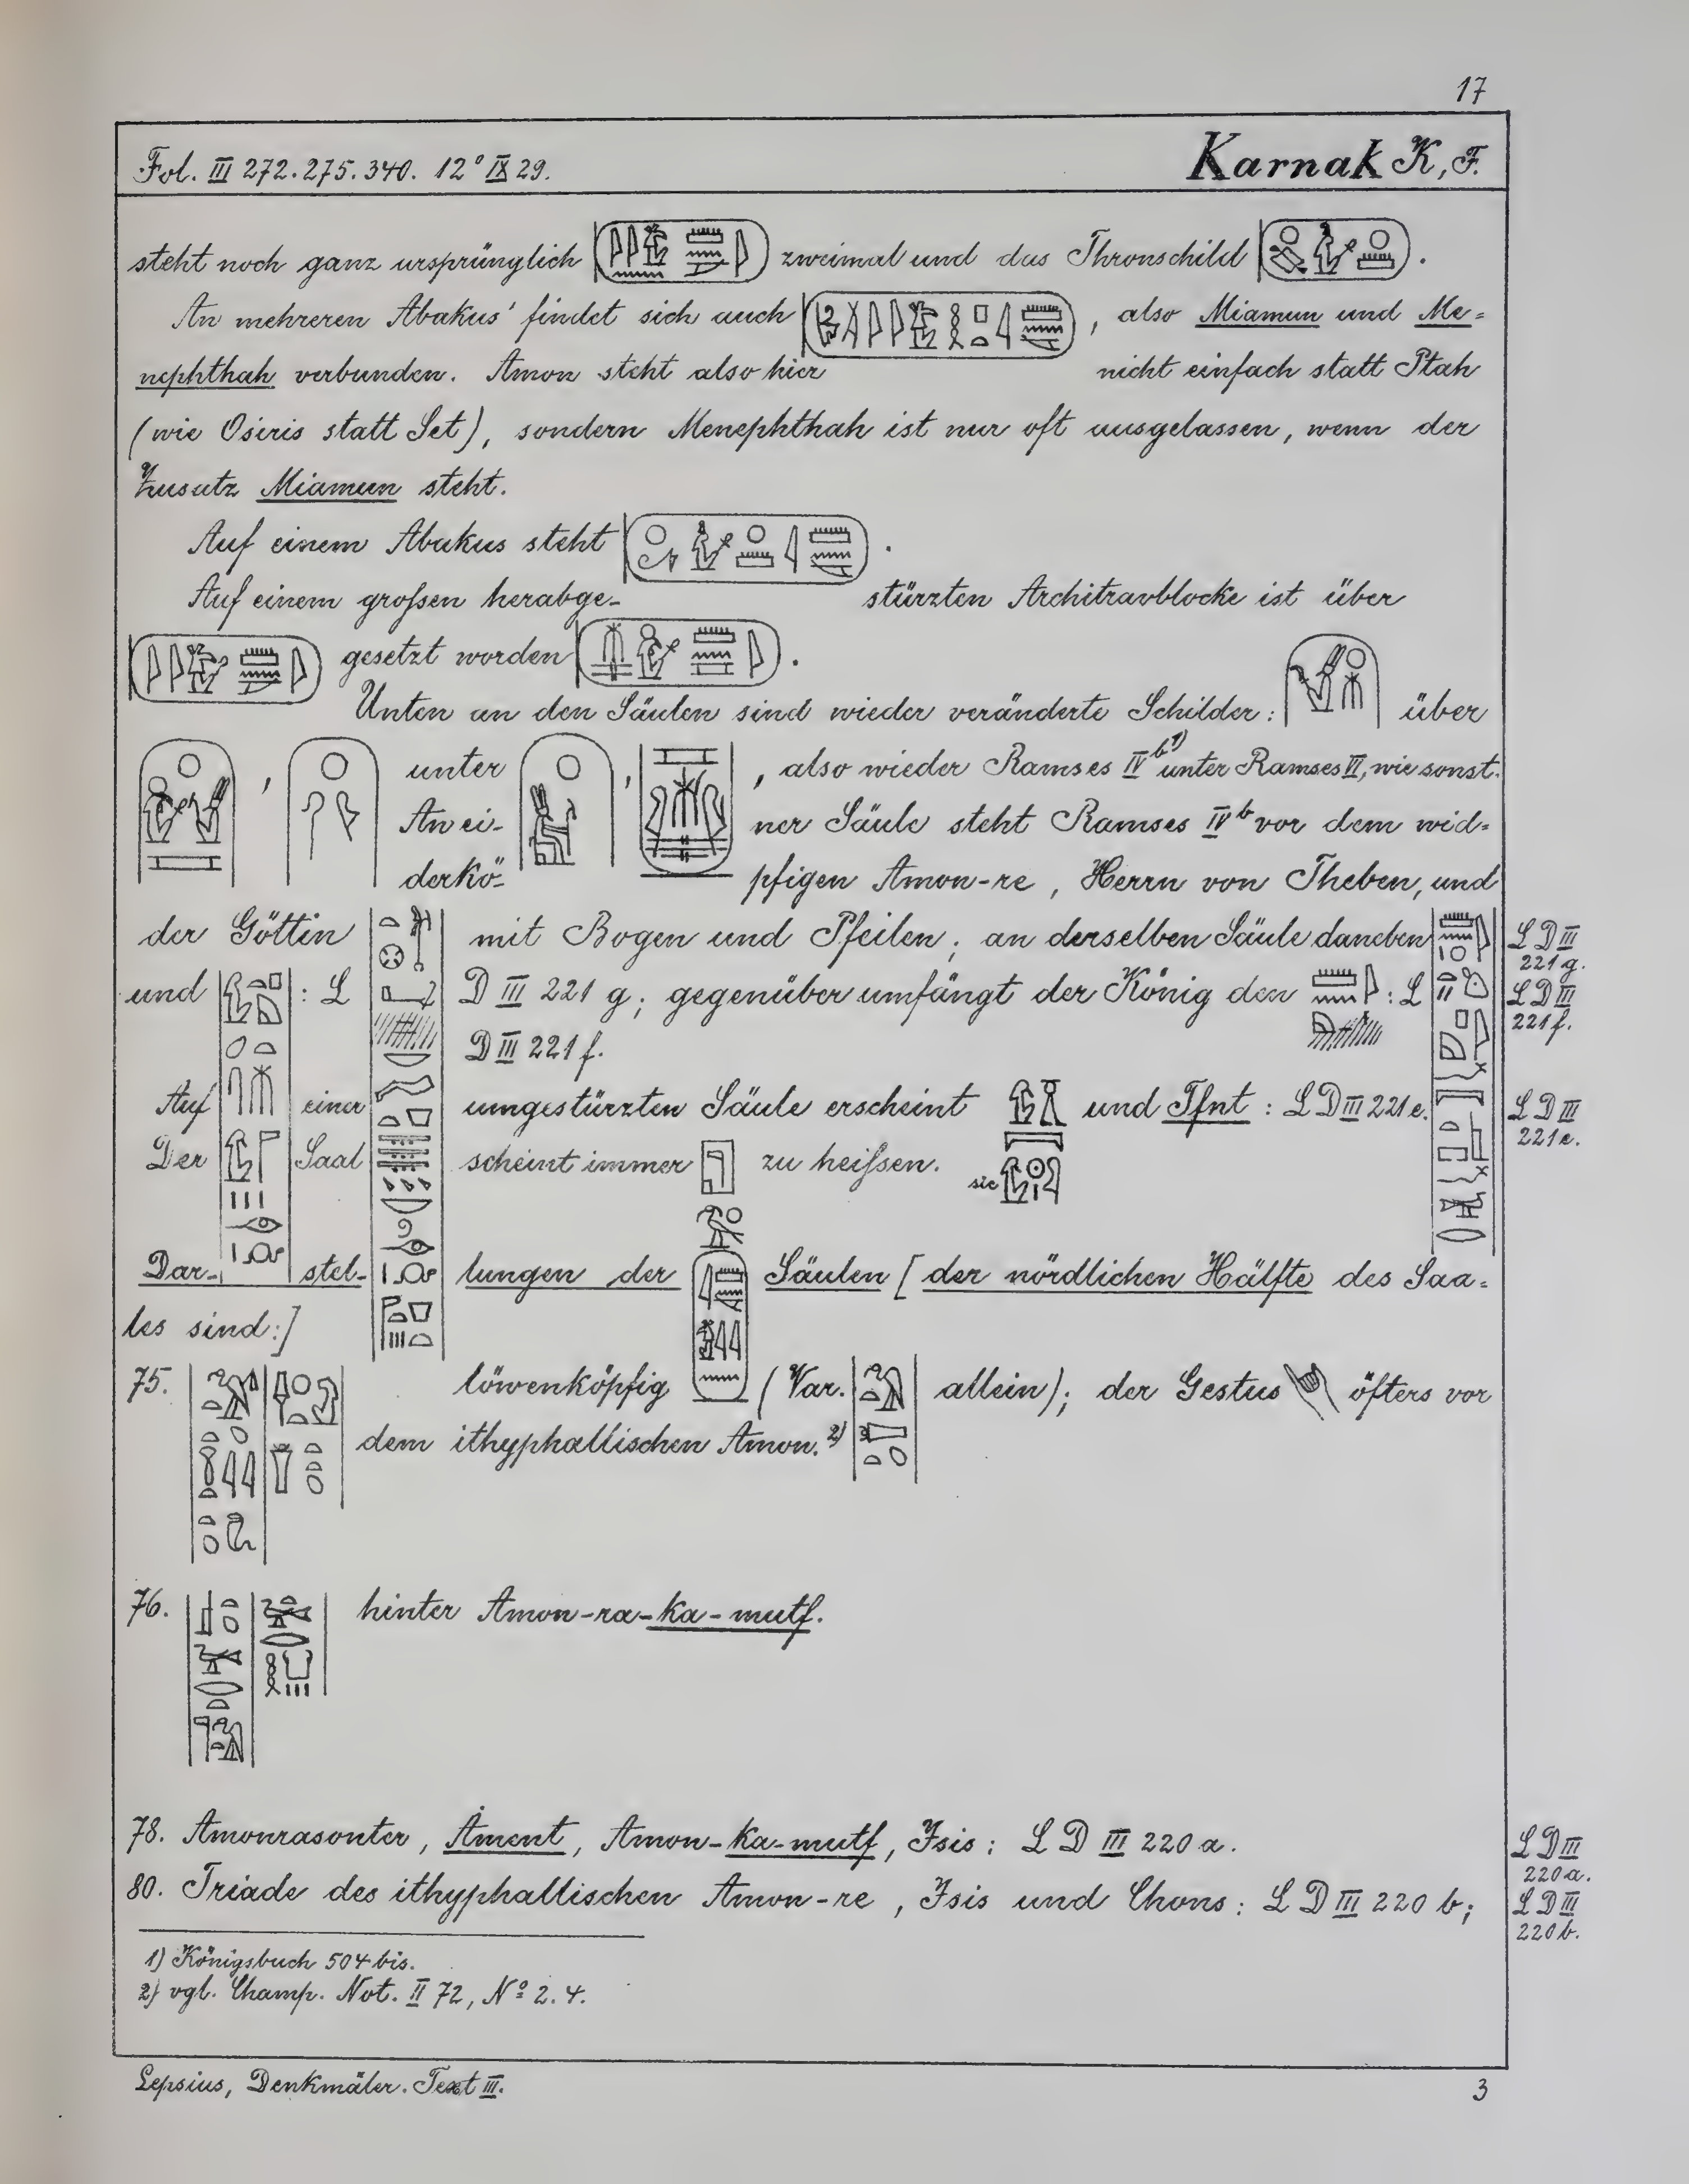 17
Fol. III 272.275.340. 12° IX 29. Karnak K, F.
steht noch ganz ursprünglich zweimal und das Thronschild .
An mehreren Abakus' findet sich auch , also Miamun und Me=
nephthah verbunden. Amon steht also hier nicht einfach statt Ptah
(wie Osiris statt Set), sondern Menephthah ist nur oft ausgelassen, wenn der
Zusatz Miamun steht.
Auf einem Abakus steht .
Auf einem großen herabge- stürzten Architravblocke ist über
gesetzt worden .
Unten an den Säulen sind wieder veränderte Schilder: über
, unter , , also wieder Ramses IV b 1) unter Ramses VI, wie sonst.
An ei- ner Säule steht Ramses IV b vor dem wid=
derkö- pfigen Amon-re, Herrn von Theben, und
der Göttin mit Bogen und Pfeilen; an derselben Säule daneben LD III 221 g.
und : L D III 221 g; gegenüber umfängt der König den : L LD III 221 f.
D III 221 f.
Auf einer umgestürzten Säule erscheint und Tfnt : LD III 221 e. LD III 221 e.
Der Saal scheint immer zu heißen. sic
Dar- stel- lungen der Säulen [der nördlichen Hälfte des Saa=
les sind:]
75. löwenköpfig (Var. allein); der Gestus öfters vor
dem ithyphallischen Amon. 2)
76. hinter Amon-ra-ka-mutf.
78. Amonrasonter, Ȧment, Amon-ka-mutf, Isis: LD III 220 a. LD III 220 a.
80. Triade des ithyphallischen Amon-re, Isis und Chons: LD III 220 b; LD III 220 b.
1) Königsbuch 504 bis.
2) vgl. Champ. Not. II 72, Nº 2. 4.
Lepsius, Denkmäler. Text III. 3